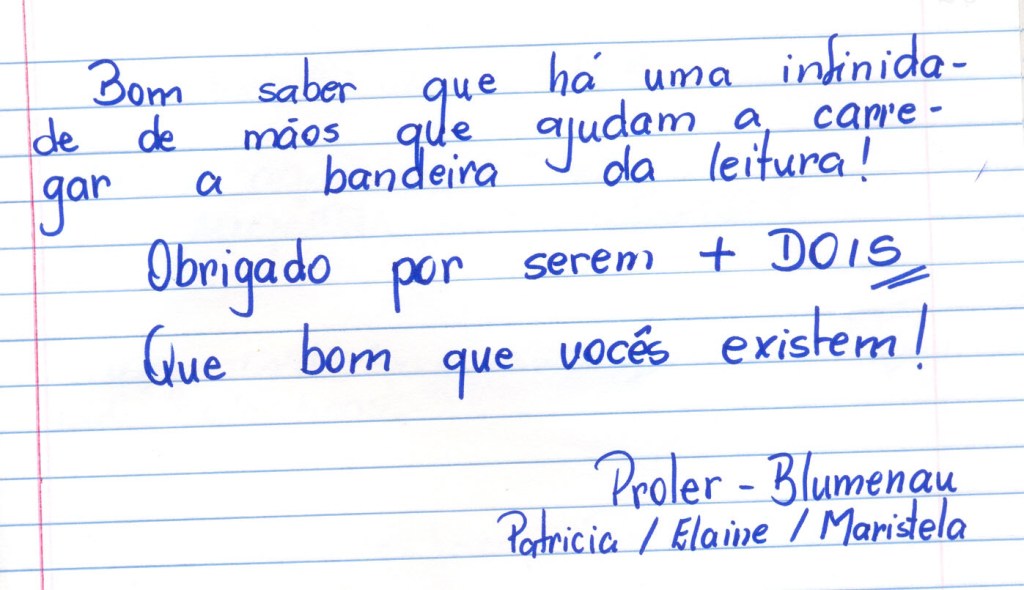 Bom saber que há uma infinida-
de de mãos que ajudam a carre-
gar a bandeira da leitura!
Obrigado por serem + DOIS
Que bom que vocês existem!
Proler - Blumenau
Patricia / Elaine / Maristela